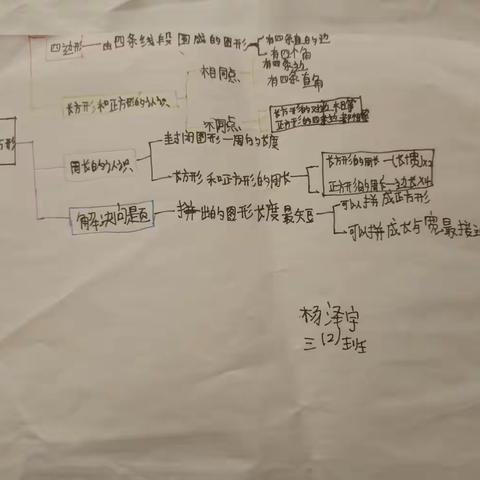 四边形 — 由四条线段围成的图形
有四条直的边
有四个角
相同点
有四条边
有四条直角
长方形和正方形的认识
不同点
长方形的对边相等
正方形的四条边都相等
方形
周长的认识
封闭图形一周的长度
长方形和正方形的周长
长方形的周长=(长+宽)×2
正方形的周长=边长×4
解决问题
拼出的图形长度最短
可以拼成正方形
可以拼成长与宽最接近
杨泽宇
三(2)班